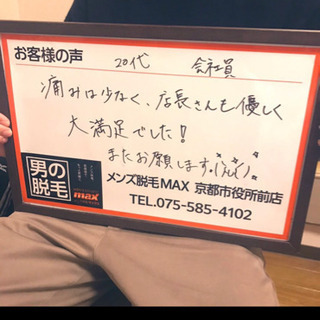 お客様の声
20代 会社員
痛みは少なく、店長さんも優しく
大満足でした!
またお願します。
男の
脱毛
max
メンズ脱毛MAX 京都市役所前店
TEL.075-585-4102